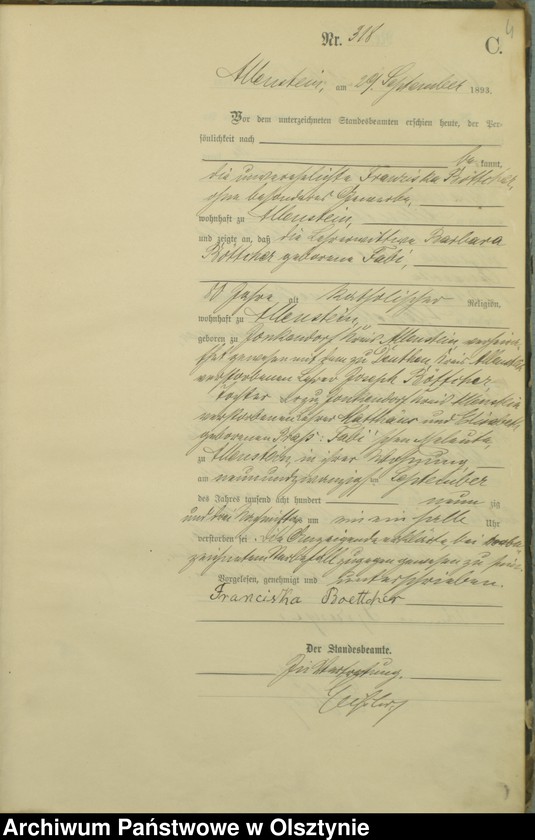 4
Nr. 318
C.
Allenstein, am 29. September 1893.
Vor dem unterzeichneten Standesbeamten erschien heute, der Per-
sönlichkeit nach
be kannt,
die unverehelichte Franziska Böttcher,
ohne besonderes Gewerbe,
wohnhaft zu Allenstein,
und zeigte an, daß die Lehrerwittwe Barbara
Böttcher geborene Fabi,
80 Jahre alt katholischer Religion,
wohnhaft zu Allenstein,
geboren zu Jonkendorf Kreis Allenstein, verheira-
thet gewesen mit dem zu Deuthen Kreis Allenstein
verstorbenen Lehrer Joseph Böttcher
Tochter der zu Jonkendorf Kreis Allenstein
verstorbenen Lehrer Matthäus und Elisabeth
geborenen Fabi'schen Eheleute,
zu Allenstein, in ihrer Wohnung
am neunundzwanzigsten September
des Jahres tausend acht hundert neun zig
und drei Nachmittags um ein ein halb Uhr
verstorben sei. Die Anzeigende erklärte, bei
zeichnetem Sterbefall zugegen gewesen zu sein.
Vorgelesen, genehmigt und unterschrieben.
Franciska Boettcher
Der Standesbeamte.
In Vertretung.
Archiwum Państwowe w Olsztynie